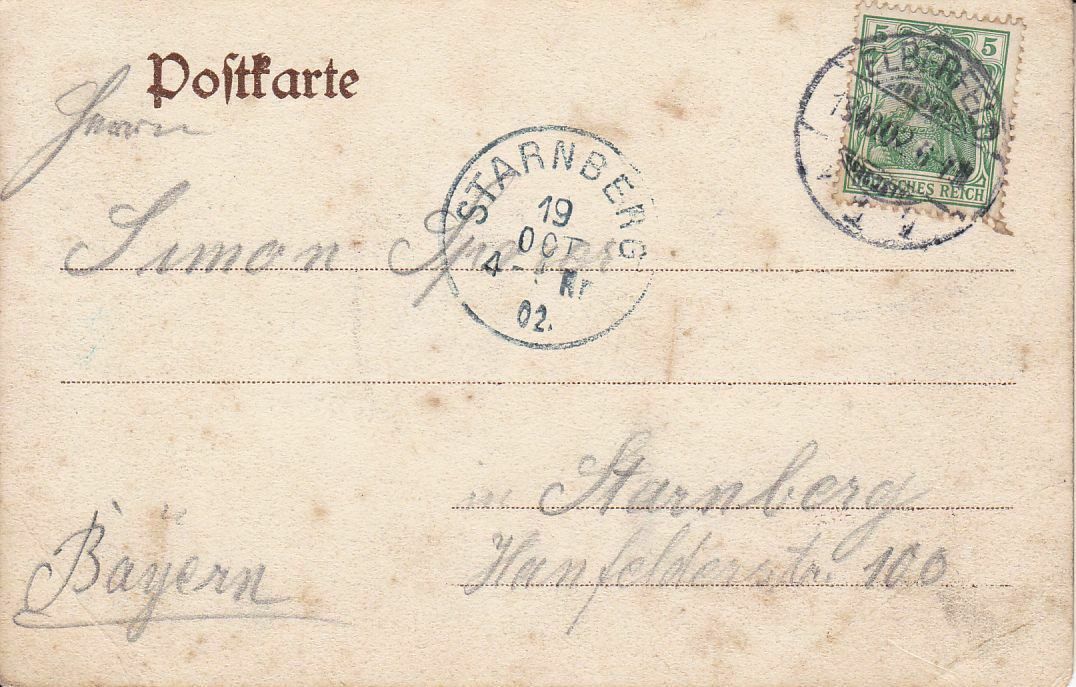 Postkarte
Herrn
Simon
STARNBERG
19
OCT
02.
5 5
ELBERFELD
DEUTSCHES REICH
in Starnberg
Hanfelderstr. 100
Bayern